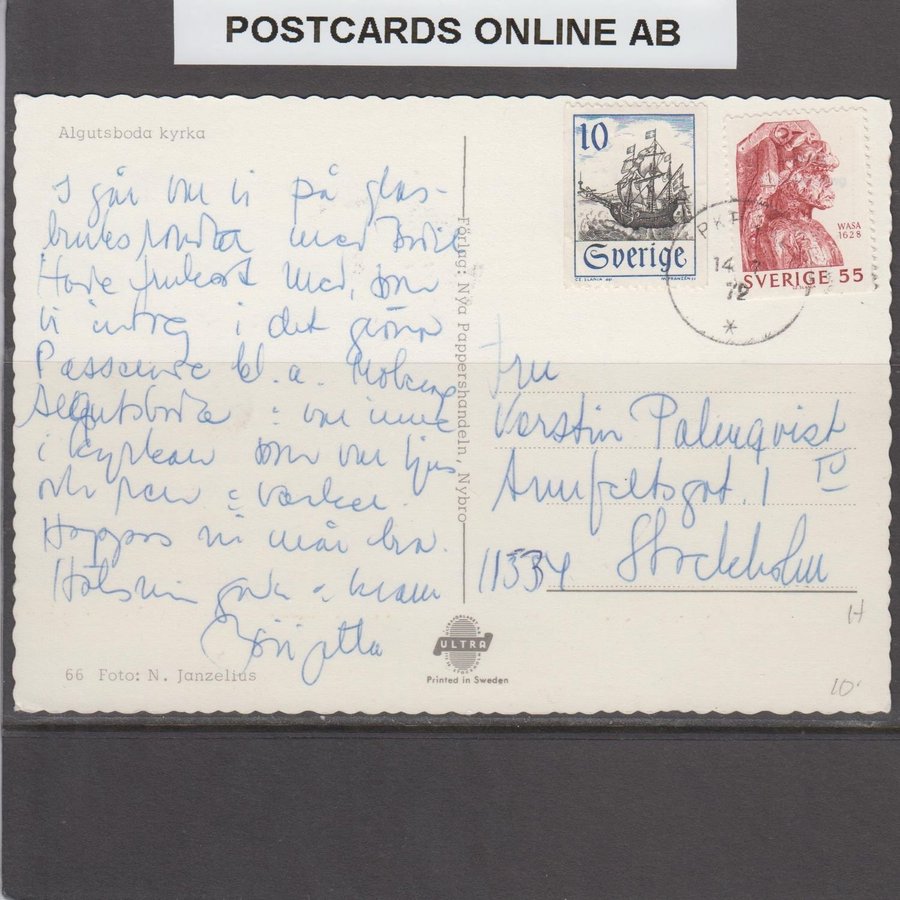 POSTCARDS ONLINE AB
Algutsboda kyrka
I går var vi på glas-
bruksrundtur med
Hade med, som
vi i det gröna
Passerade bl.a. Moberg
Algutsboda var inne
i kyrkan som var ljus
och vacker.
Hoppas ni mår bra.
Hälsningar kram
Birgitta
66 Foto: N. Janzelius
Förlag: Nya Pappershandeln, Nybro
ULTRA
Printed in Sweden
10
Sverige
WASA
1628
SVERIGE 55
14
72
Fru
Kerstin Palmqvist
Armfeltsgat. 11
11334 Stockholm
H
10